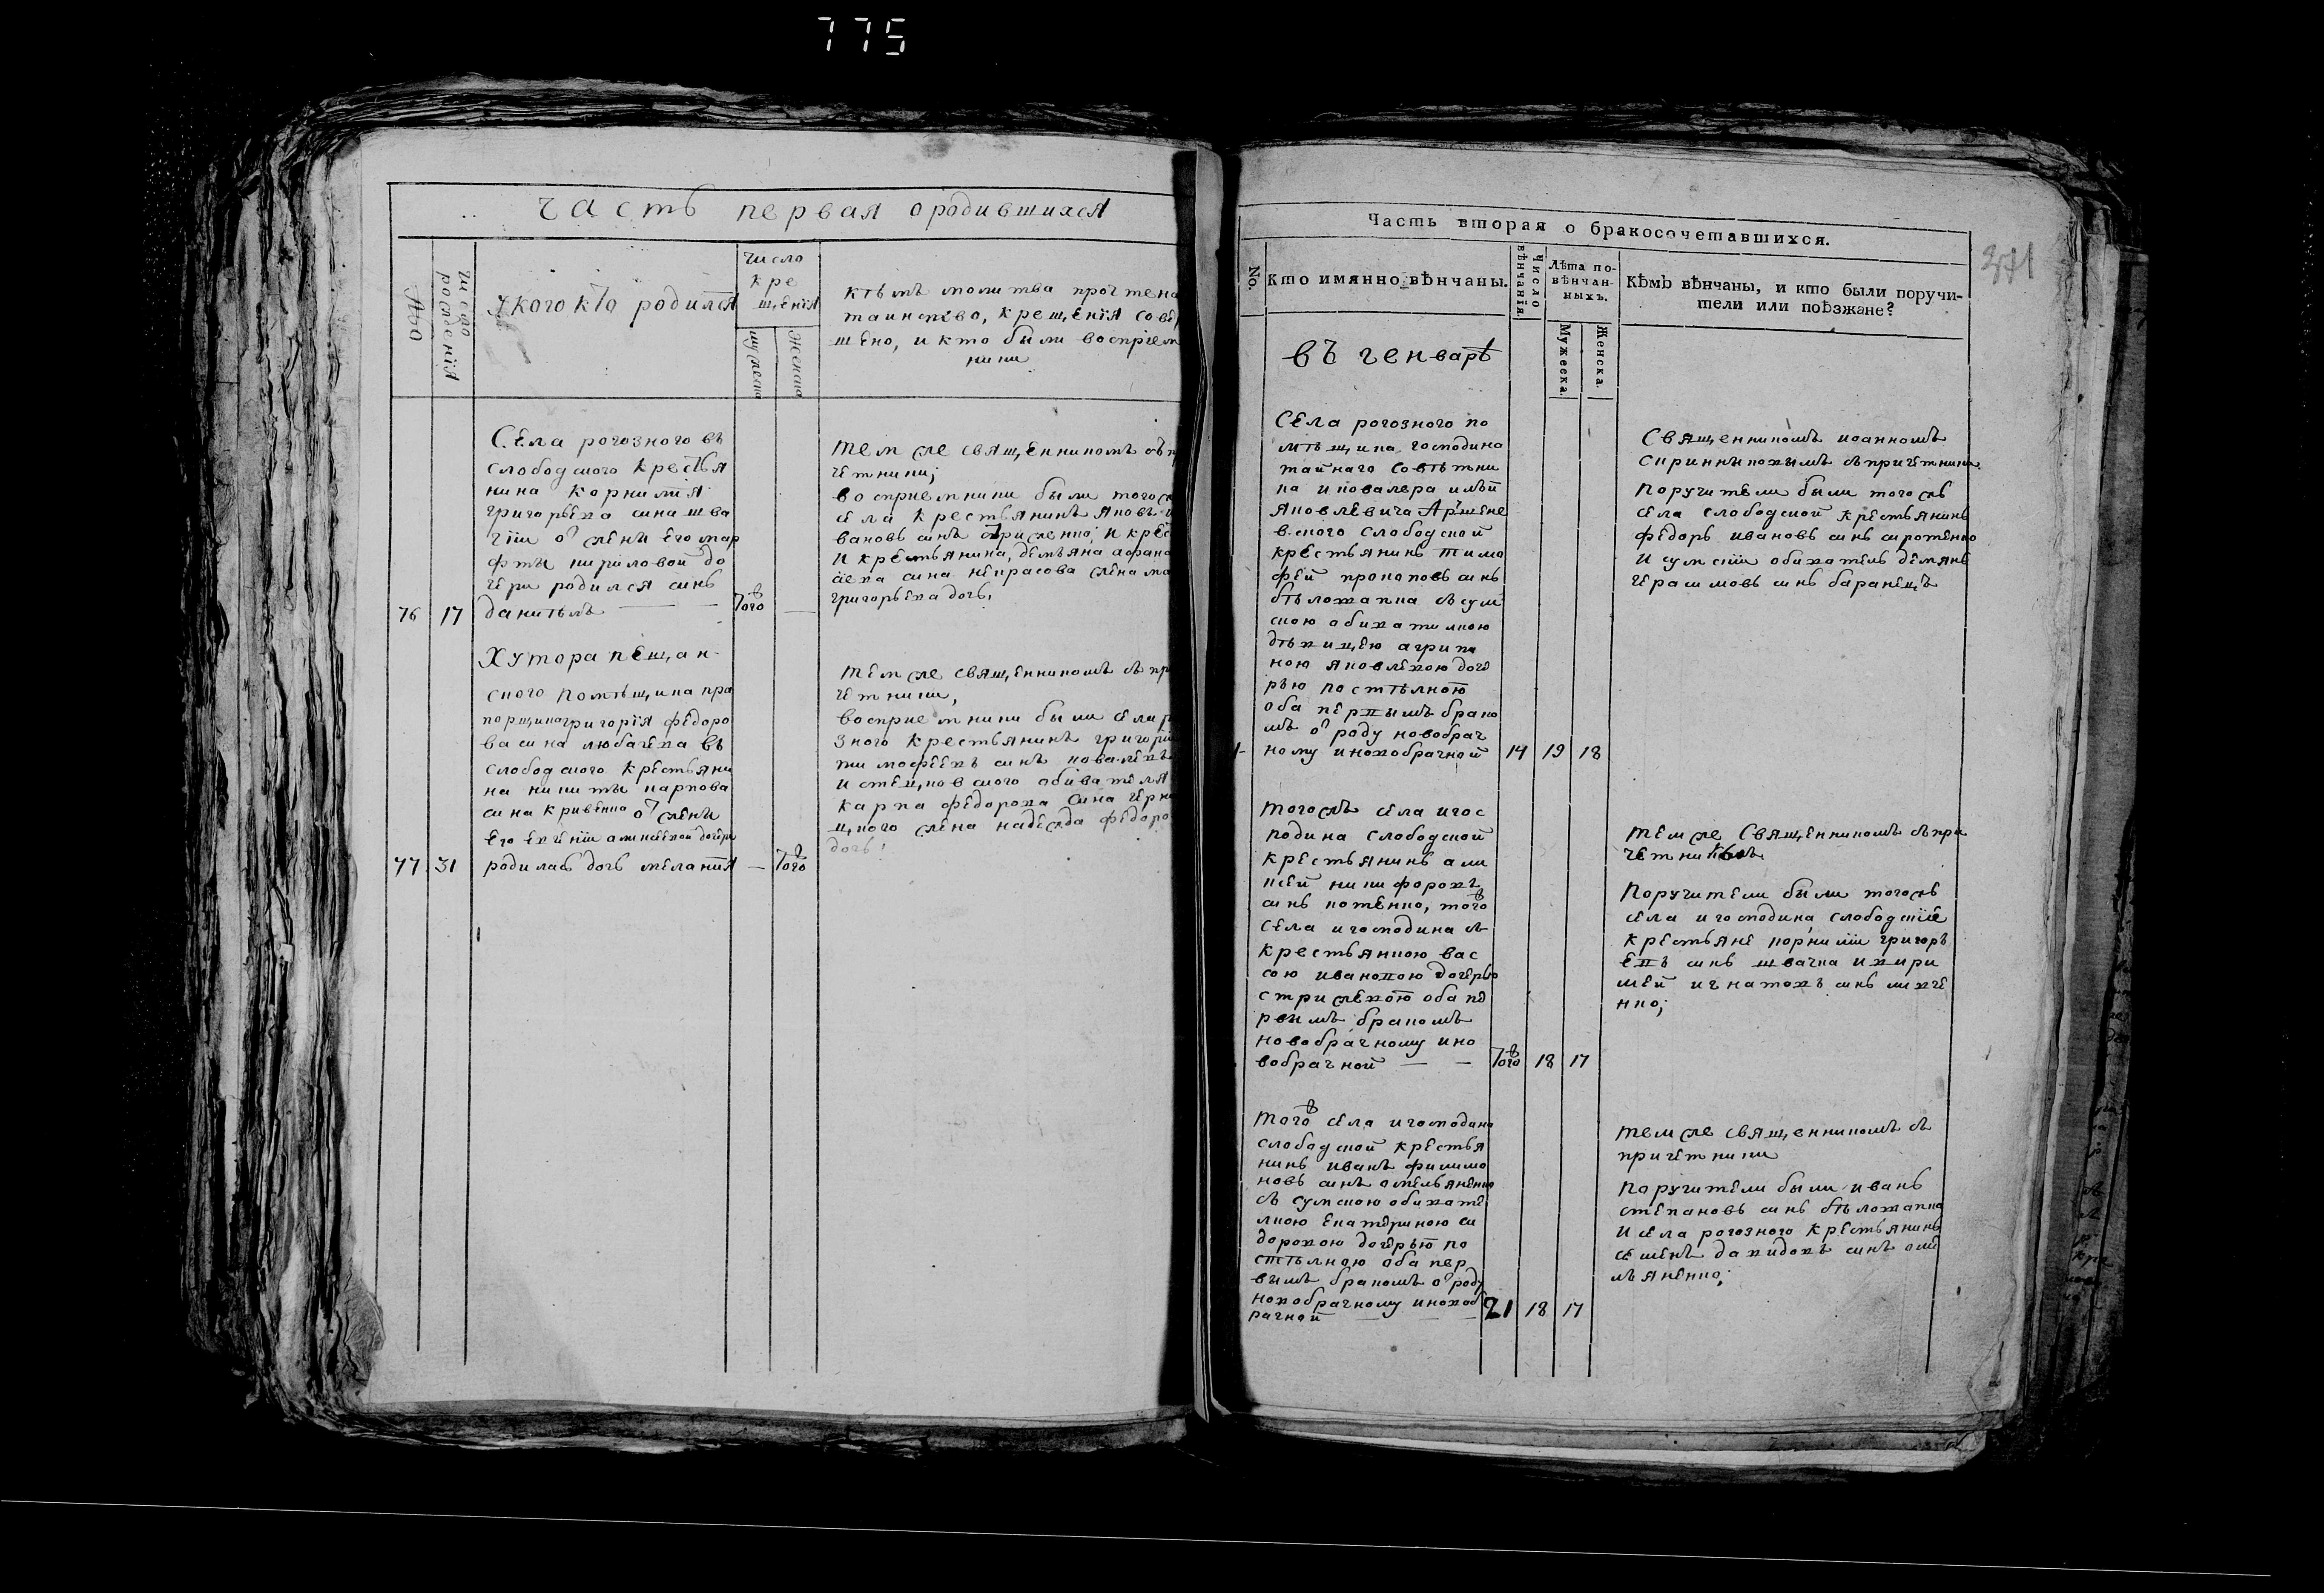 775
Часть первая ородившихся
№
число рождения
укого кто родился
число
кре
щения
мужеска
женска
кѣмъ молитва прочтена
таинство, крещения совер
шено, и кто были восприем
ники
Села рогозного въ
слободского крестья
нина корнилия
григорьева сина шва
чки от жени его мар
фты кириловой до
чери родился синъ
76 17 данитлъ — — того —
тем же священникомъ съ пр
четники;
восприемники были того ж
села крестьянинъ яковъ и
вановъ синъ стриженко, и крес
и крестьянина, демьяна афана
сиева сина некрасова жена ма
григорьева дочь,
Хутора пещан-
ского помѣщика пра
порщика григория федоро
ва сина любачева въ
слободского крестьяни
на никиты карпова
сина кривенка от жени
его евгении аликсеевой дочери
77 31 родилась дочь мелания — того
тем же священникомъ съ пр
четники,
восприемники были села р
зного крестьянинъ григорий
тимофеевъ синъ ковалевъ
и стецковского обивателя
карпа федорова сина черни
цкого жена надежда федоро
дочь!
371
Часть вторая о бракосочетавшихся.
No.
Кто имянно вѣнчаны.
Число вѣнчанія.
Лѣта по-
вѣнчан-
ныхъ.
Мужеска.
Женска.
Кѣмъ вѣнчаны, и кто были поручи-
тели или поѣзжане?
въ генварѣ
Села рогозного по
мѣщика господина
тайнаго совѣтни
ка и ковалера
яковлевича Аршене
вского слободской
крестьянинъ тимо
фей прокаповъ синъ
бѣложапка съ сум
скою обивателкою
дѣвицею агрипи
ною яковлевою доче
рью постѣлкою
оба первымъ брако
мъ от роду новобрач
ному иновобрачной 14 19 18
Священникомъ иоанномъ
съ причетники
поручители были того жъ
села слободской крестьянинъ
федоръ ивановъ синъ сиротенко
и сумский обиватель демянъ
герасимовъ синъ баранецъ
того жъ села игос
подина слободской
крестьянинъ али
ксей никифоровъ
синъ котенко, того
села игосподина съ
крестьянкою вас
сою ивановою дочерью
стрижевою оба пе
рвимъ бракомъ
новобрачному ино
вобрачной — — того 18 17
тем же священникомъ съ при
четникомъ
поручители были того жъ
села игосподина, слободские
крестьяне корнилий григорь
евъ синъ швачка икири
лей игнатовъ синъ
нко;
того села игосподина
слободской крестья
нинъ иванъ филимо
новъ синъ омельяненко
съ сумскою обивате
лкою екатериною си
доровою дочерью по
стѣлкою оба пер
вимъ бракомъ от роду
новобрачному иновоб
рачной — — — 21 18 17
тем же священникомъ съ
причетники
поручители были иванъ
степановъ синъ бѣложапка
и села рогозного крестьянинъ
семенъ давидовъ синъ оме
льяненко;